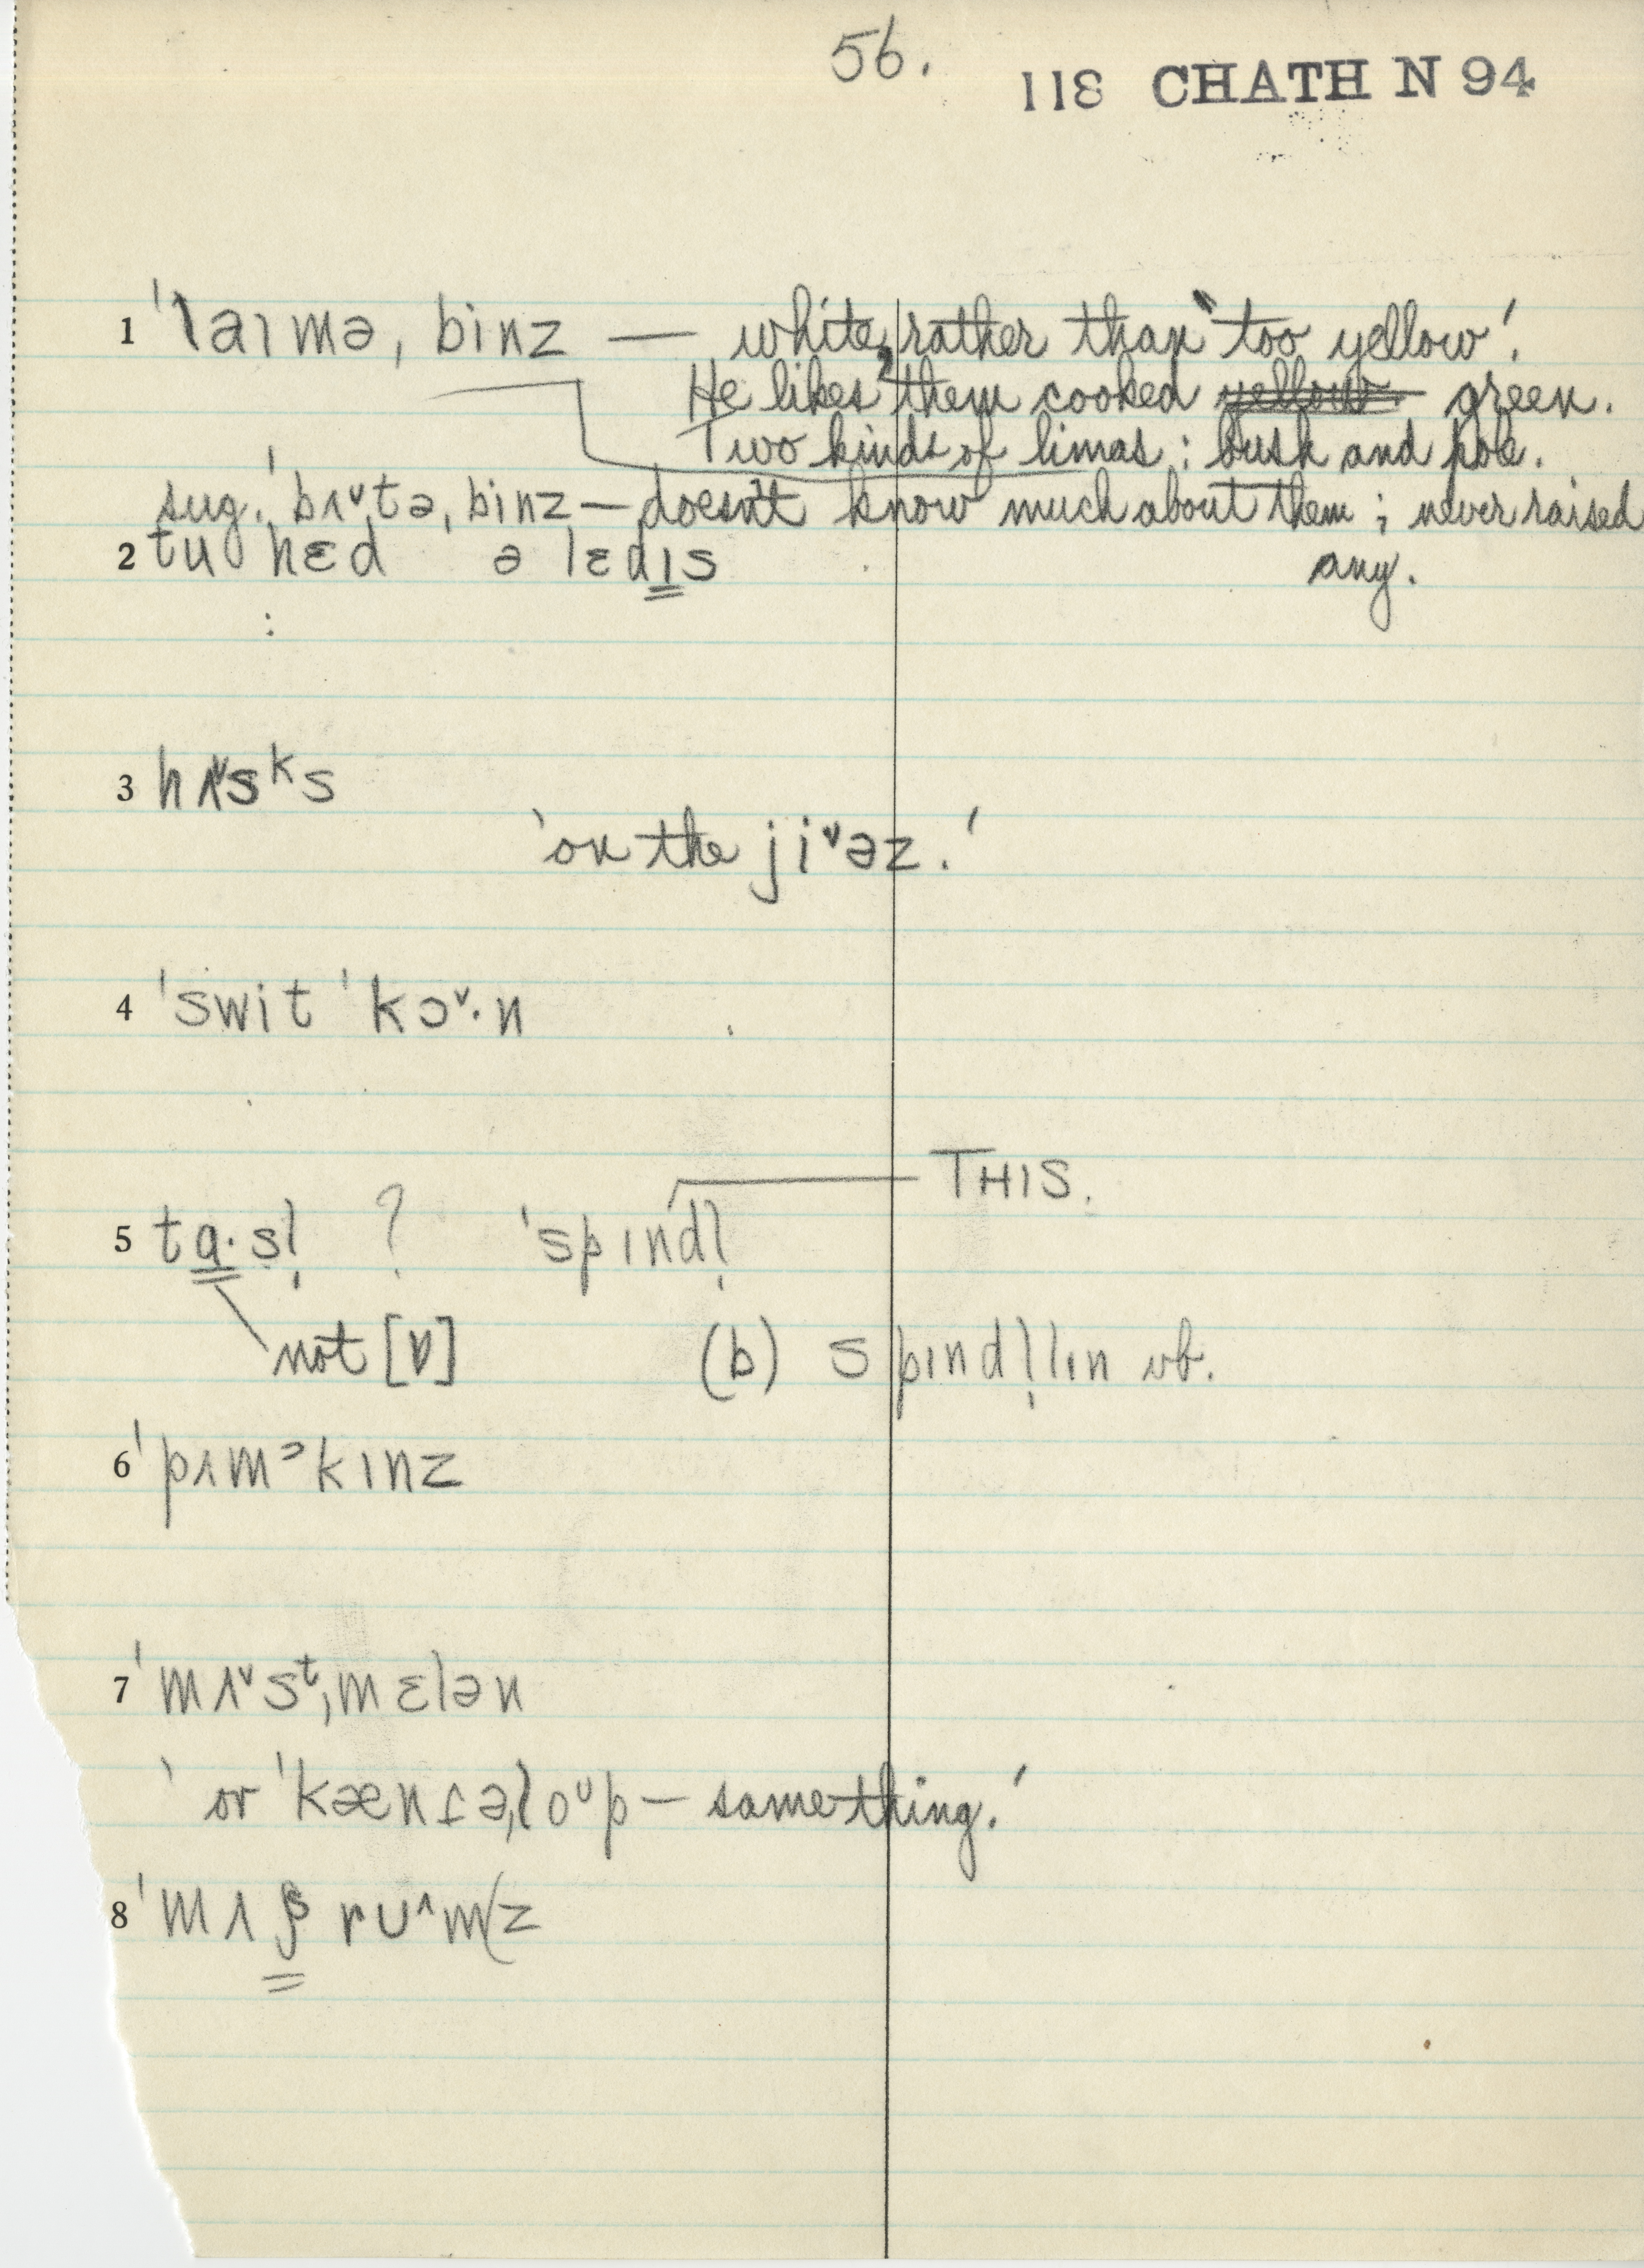 56.
118 CHATH N 94
1 ˈlaɪmə ˌbinz — white, rather than 'too yellow'.
He likes them cooked yellow. green.
Two kinds of limas: bush and pole.
sug. ˈbʌ˅tə ˌbinz — doesn't know much about them; never raised
any.
2 tu hɛd ə lɛdɪs
:
3 hʌ˅sᵏs
'on the ji˅əz.'
4 ˈswit ˈkɔ˅·n
THIS.
5 tɑ·sl̩ ? ˈspɪndl̩
not [ɒ] (b) spɪndl̩lɪn vb.
6 ˈpʌmᵊkɪnz
7 ˈmʌ˅sᵗˌmɛlən
' or ˈkænɾəˌloᶷp — same thing.'
8 ˈmʌʃrʊ˄mz